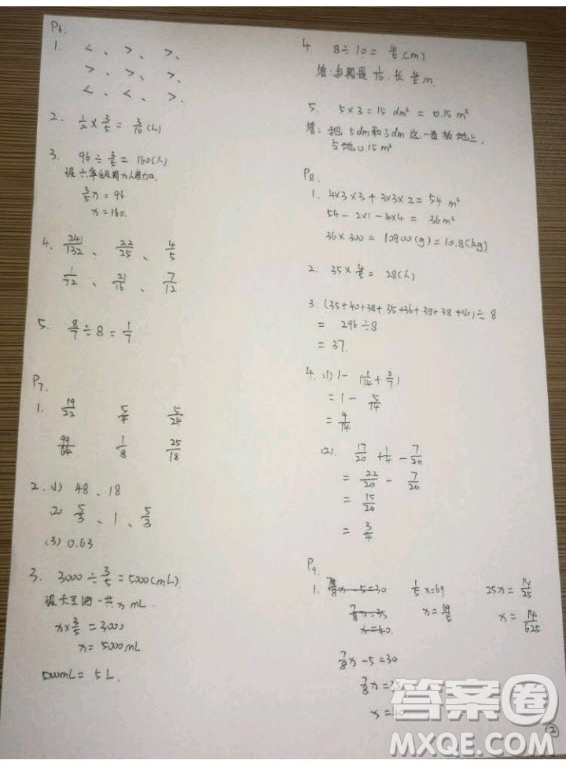 P6.
1. <、>、>、
>、>、>、
<、<、>.
2. 1/2 × 3/5 = 3/10 (h)
3. 96 ÷ 3/5 = 160(人)
3/5 x = 96
x = 160.
4. 241/132、23/25、4/5
1/72、21/16、7/12
5. 8/7 ÷ 8 = 1/7
P7.
1. 19/22 5/4 5/24
1/8 25/18
2. (1) 48、18
(2) 5/3、1、5/3
(3) 0.63
3. 3000 ÷ 3/5 = 5000(mL)
设大豆油一共x mL.
x × 3/5 = 3000
x = 5000mL
5000mL = 5L.
4. 8 ÷ 10 = 4/5 (m)
答:每段是 1/10,长 4/5 m.
5. 5×3 = 15 dm² = 0.15 m²
答:把5dm和3dm这一面放地上,
占地0.15m²
P8.
1. 4×3×3 + 3×3×2 = 54 m²
54 - 2×1 - 4×4 = 36m²
36×300 = 10800(g) = 10.8(kg)
2. 35 × 4/5 = 28(人)
3. (35+40+38+35+36+
= 296 ÷ 8
= 37.
4. (1) 1 - (1/14 + 2/7)
= 1 - 5/14
= 9/14
(2). 17/20 + 1/4 - 7/20
= 22/20 - 7/20
= 15/20
= 3/4
P9
1. 7/8 x - 5 = 30 25x = 14/25
x = 14/625
7/8 x = 35
x = 40
7/8 x - 5 = 30
7/8 x = 35
x = 40
答案圈
MXQE.COM